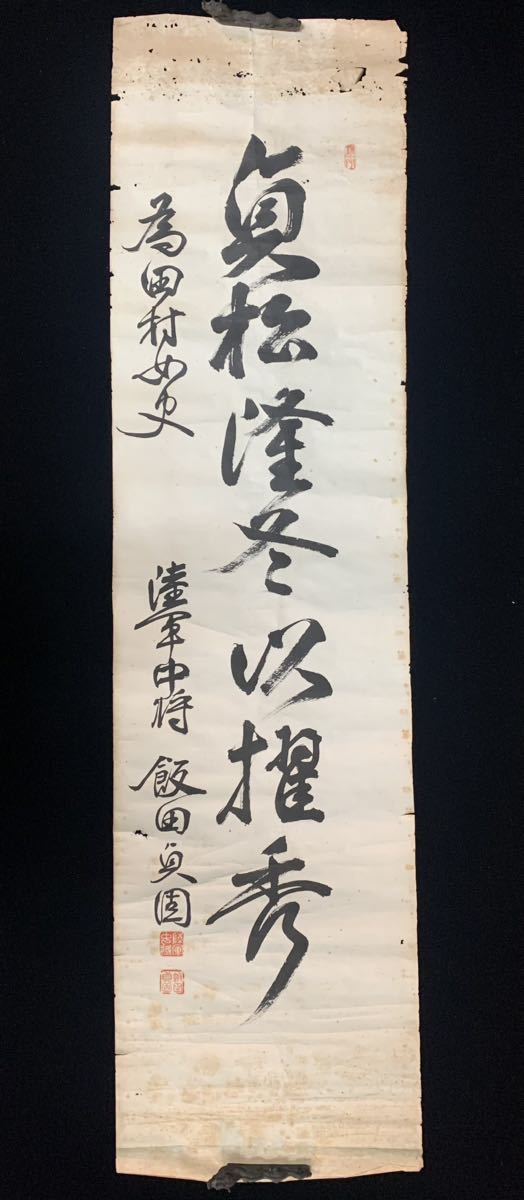 貞松隆冬以擢秀
為田村女史
陸軍中将 飯田貞固